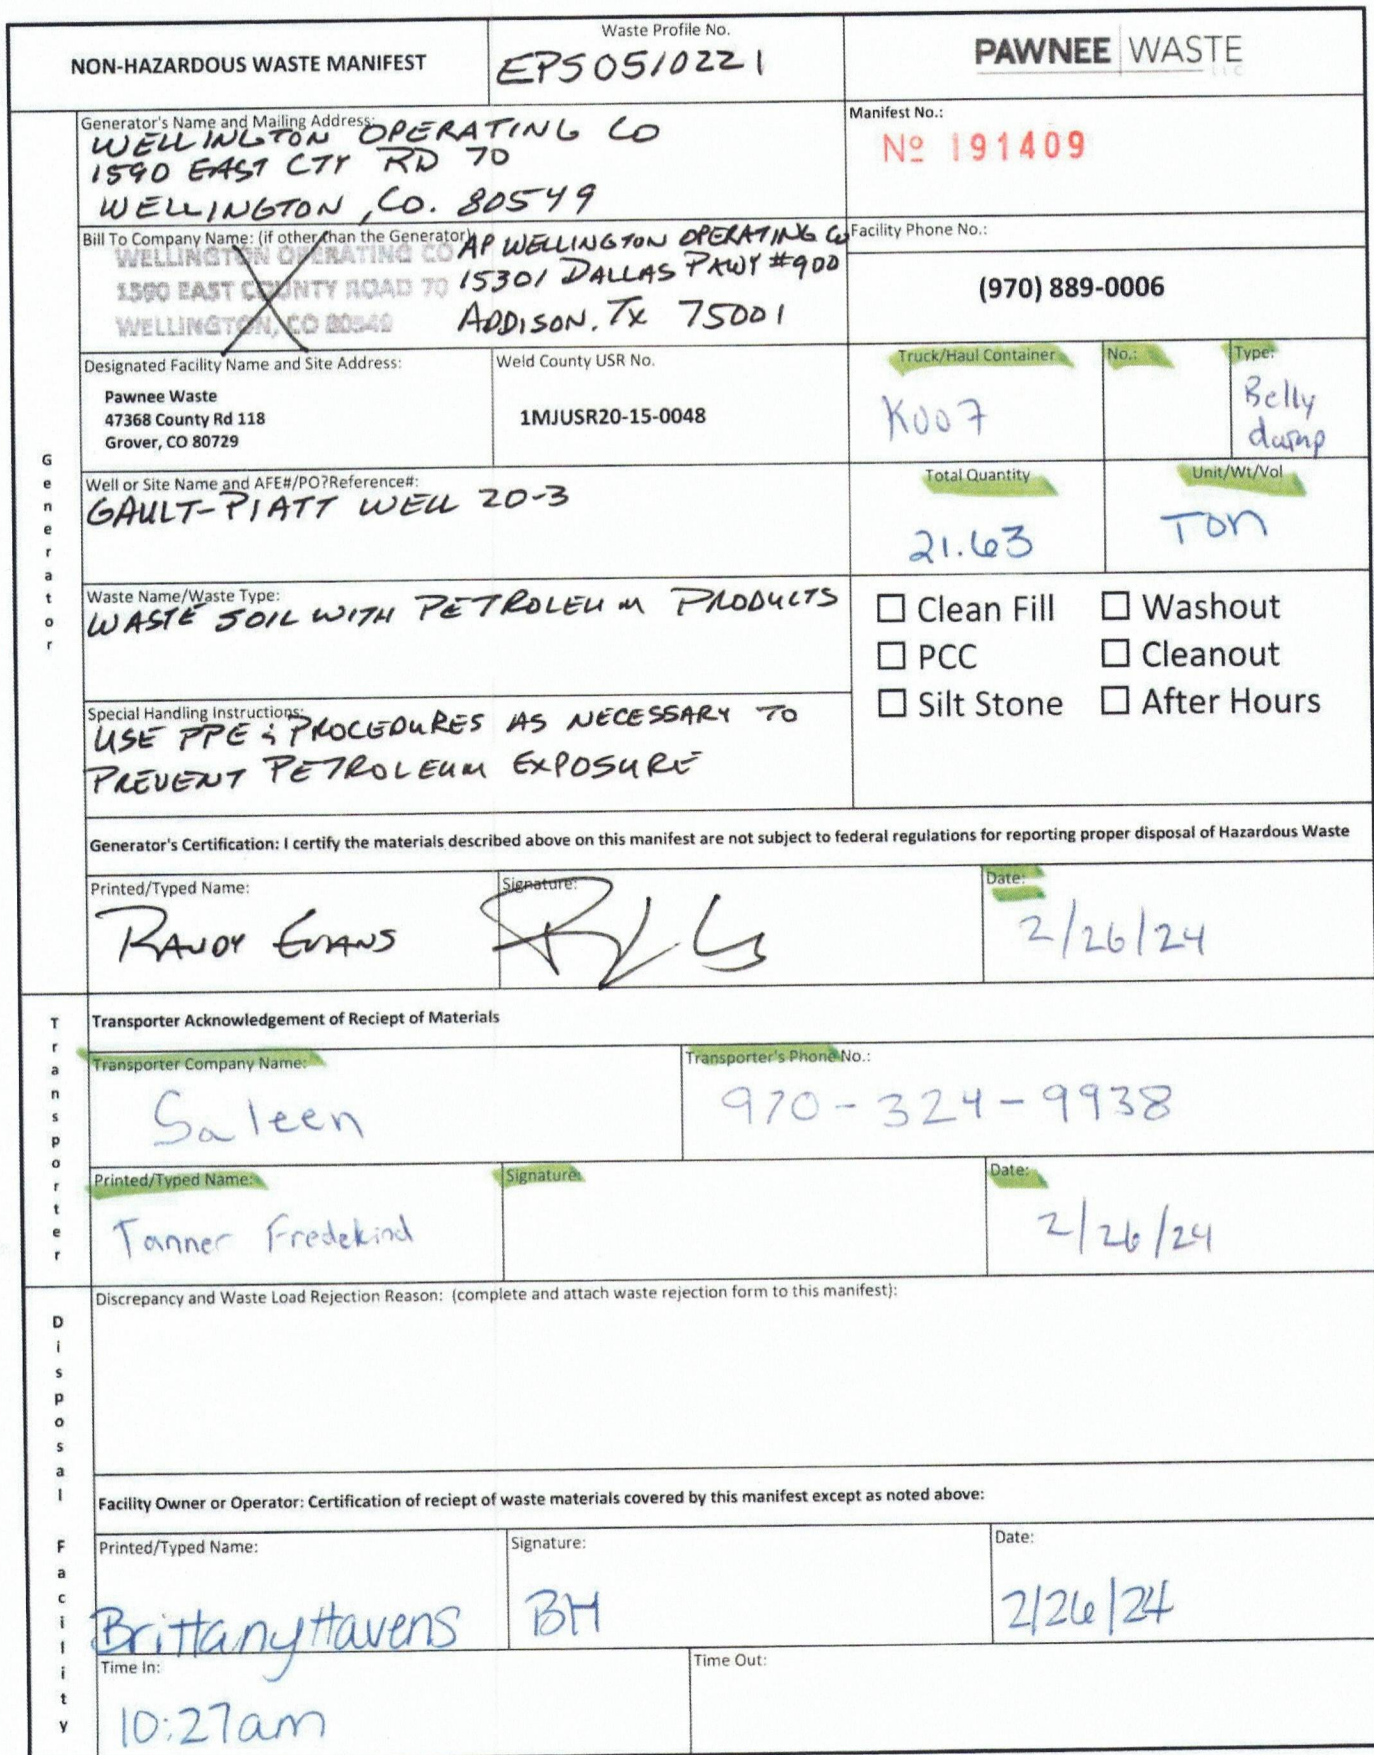 NON-HAZARDOUS WASTE MANIFEST
Waste Profile No.
EPS0510221
PAWNEE WASTE
LLC
Generator's Name and Mailing Address:
WELLINGTON OPERATING CO
1590 EAST CTY RD 70
WELLINGTON, CO. 80549
Manifest No.:
Nº 191409
Bill To Company Name: (if other than the Generator)
WELLINGTON OPERATING CO
1590 EAST COUNTY ROAD 70
WELLINGTON, CO 80549
AP WELLINGTON OPERATING CO
15301 DALLAS PKWY #900
ADDISON, TX 75001
Facility Phone No.:
(970) 889-0006
Designated Facility Name and Site Address:
Pawnee Waste
47368 County Rd 118
Grover, CO 80729
Weld County USR No.
1MJUSR20-15-0048
Truck/Haul Container
K007
No.:
Type:
Belly
dump
Well or Site Name and AFE#/PO?Reference#:
GAULT-PIATT WELL 20-3
Total Quantity
21.63
Unit/Wt/Vol
Ton
Waste Name/Waste Type:
WASTE SOIL WITH PETROLEUM PRODUCTS
☐ Clean Fill ☐ Washout
☐ PCC ☐ Cleanout
☐ Silt Stone ☐ After Hours
Special Handling Instructions:
USE PPE & PROCEDURES AS NECESSARY TO
PREVENT PETROLEUM EXPOSURE
Generator's Certification: I certify the materials described above on this manifest are not subject to federal regulations for reporting proper disposal of Hazardous Waste
Printed/Typed Name:
RANDY EVANS
Signature:
Date:
2/26/24
Transporter Acknowledgement of Reciept of Materials
Transporter Company Name:
Saleen
Transporter's Phone No.:
970-324-9938
Printed/Typed Name:
Tanner Fredekind
Signature:
Date:
2/26/24
Discrepancy and Waste Load Rejection Reason: (complete and attach waste rejection form to this manifest):
Facility Owner or Operator: Certification of reciept of waste materials covered by this manifest except as noted above:
Printed/Typed Name:
Brittany Havens
Signature:
BH
Date:
2/26/24
Time In:
10:27am
Time Out:
Generator
Transporter
Disposal Facility